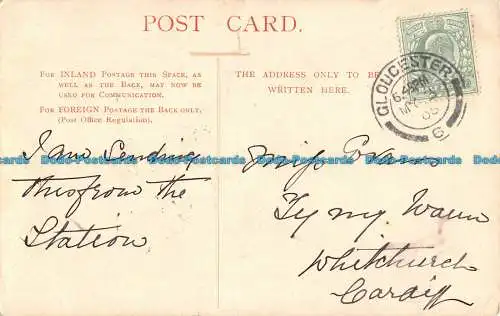 POST CARD.
FOR INLAND POSTAGE THIS SPACE, AS
WELL AS THE BACK, MAY NOW BE
USED FOR COMMUNICATION.
FOR FOREIGN POSTAGE THE BACK ONLY.
(Post Office Regulation).
THE ADDRESS ONLY TO BE
WRITTEN HERE.
GLOUCESTER
I am Sending
this from the
Station
Miss Evans
Ty my Waun
Whitchurch
Cardiff
Dodo-Postcards Dodo-Postcards Dodo-Postcards Dodo-Postcards